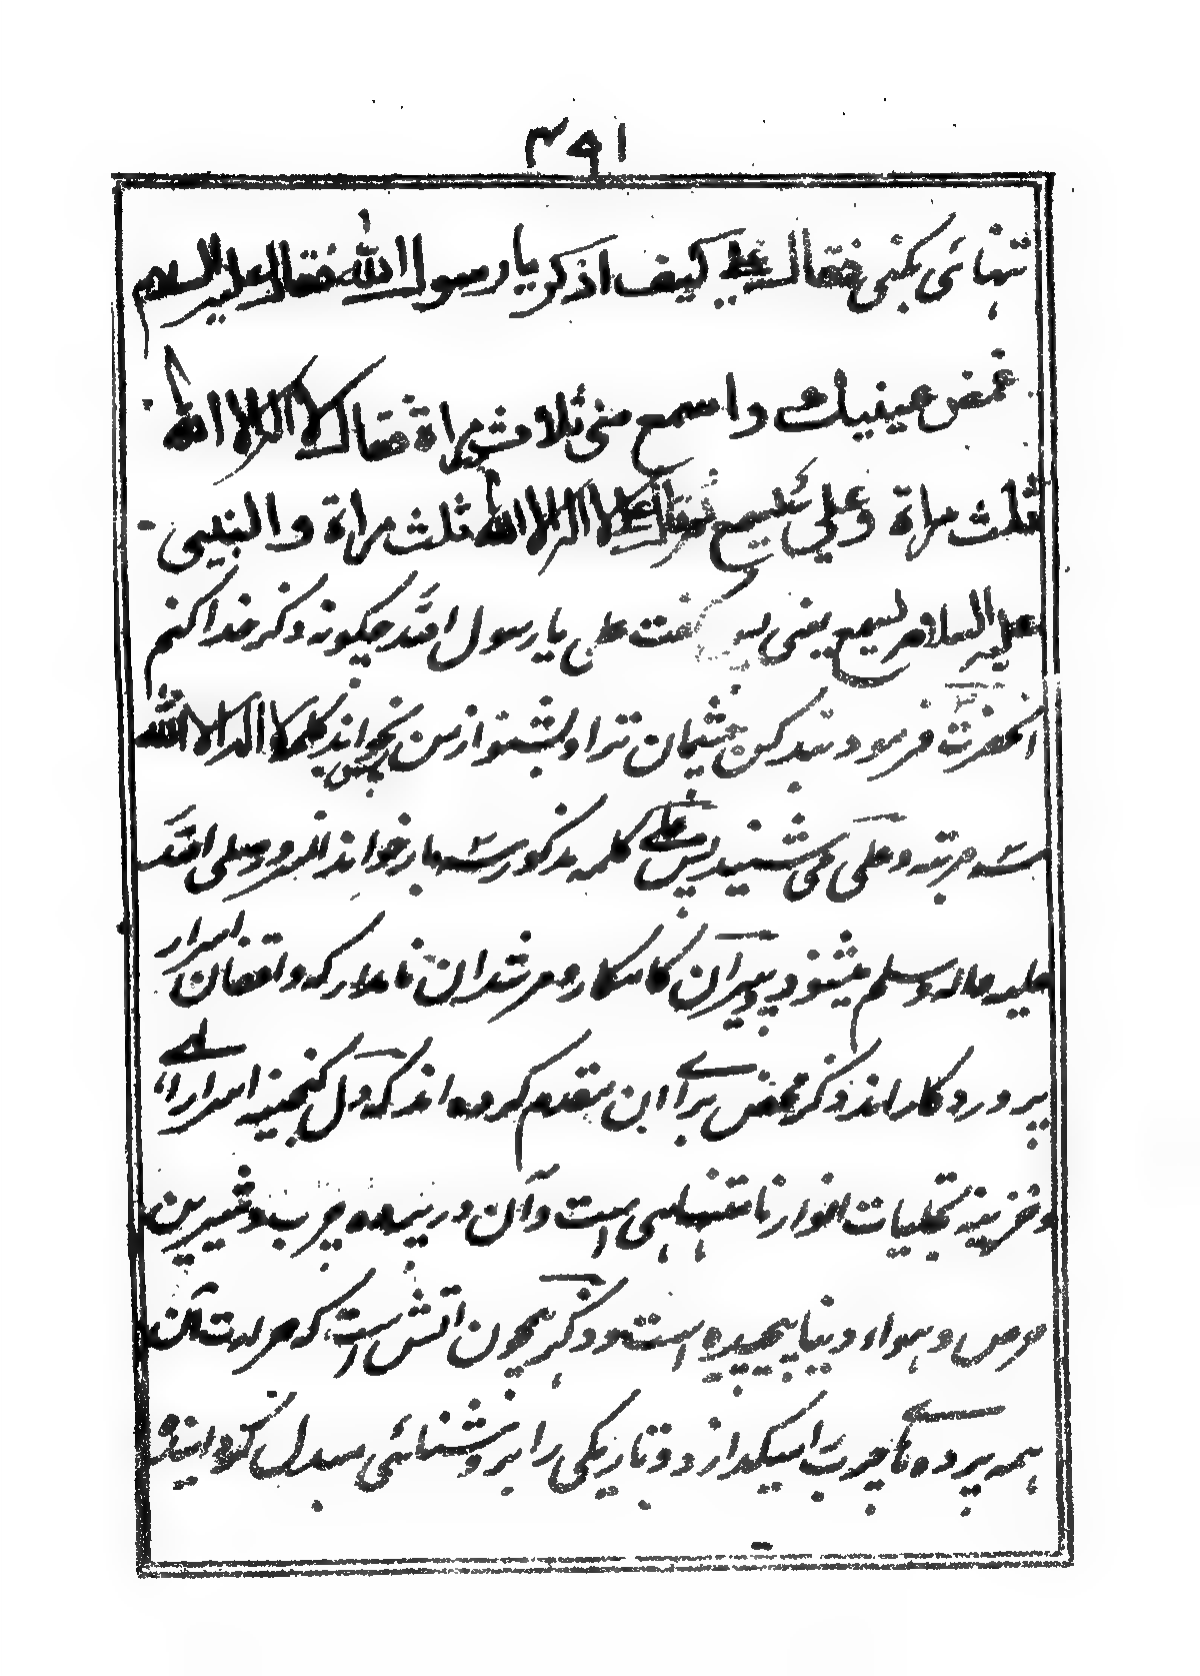 ۳۹۱
تنہائی کنی فقال علی کیف اذکر یا رسول الله فقال علیه السلام
غمض عینیک واسمع منی ثلاث مراة فقال لا اله الا الله
ثلث مراة وعلی یسمع فقال علی لا اله الا الله ثلث مراة والنبی
علیه السلام یسمع یعنی پس گفت علی یا رسول الله چگونه ذکر خدا کنم
آنحضرت فرمود بند کن چشمان ترا و بشنو از من پس بخواند کلمه لا اله الا الله
سه مرتبه و علی می شنید پس علی کلمه مذکور سه بار خواند و صلی الله
علیه وآله وسلم می شنود پیران کامگار و مرشدان نامدار که واقفان اسرار
پروردگار اند ذکر محض برای این مقدم کرده اند که دل گنجینه اسرار الهی
و خزینه تجلیات انوار نامتناهی است و آن در پرده چرب و شیرین
حرص و هواء دنیا پیچیده است و ذکر همچون آتش است که حرارت آن
همه پرده‌ها چرب را میگدازد و تاریکی را بروشنائی مبدل گرداند